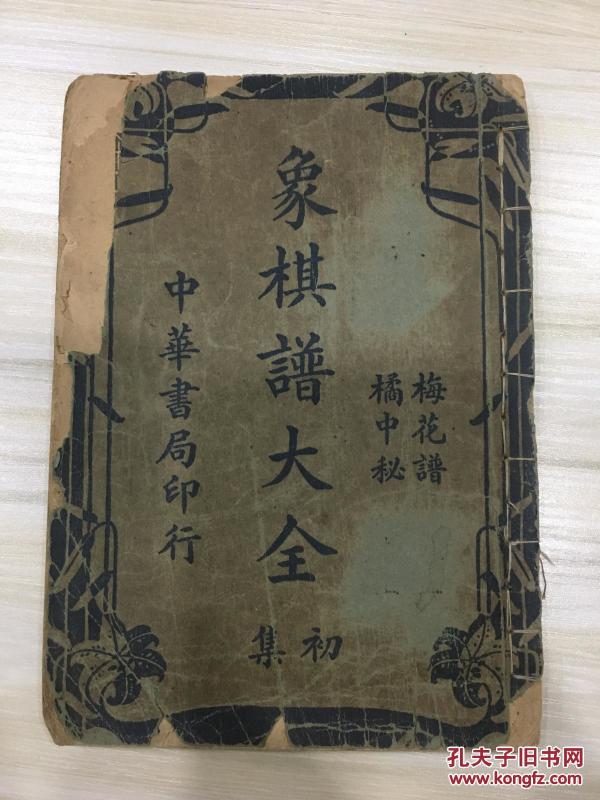 梅花譜
橘中秘
象棋譜大全
初集
中華書局印行
孔夫子旧书网
www.kongfz.com